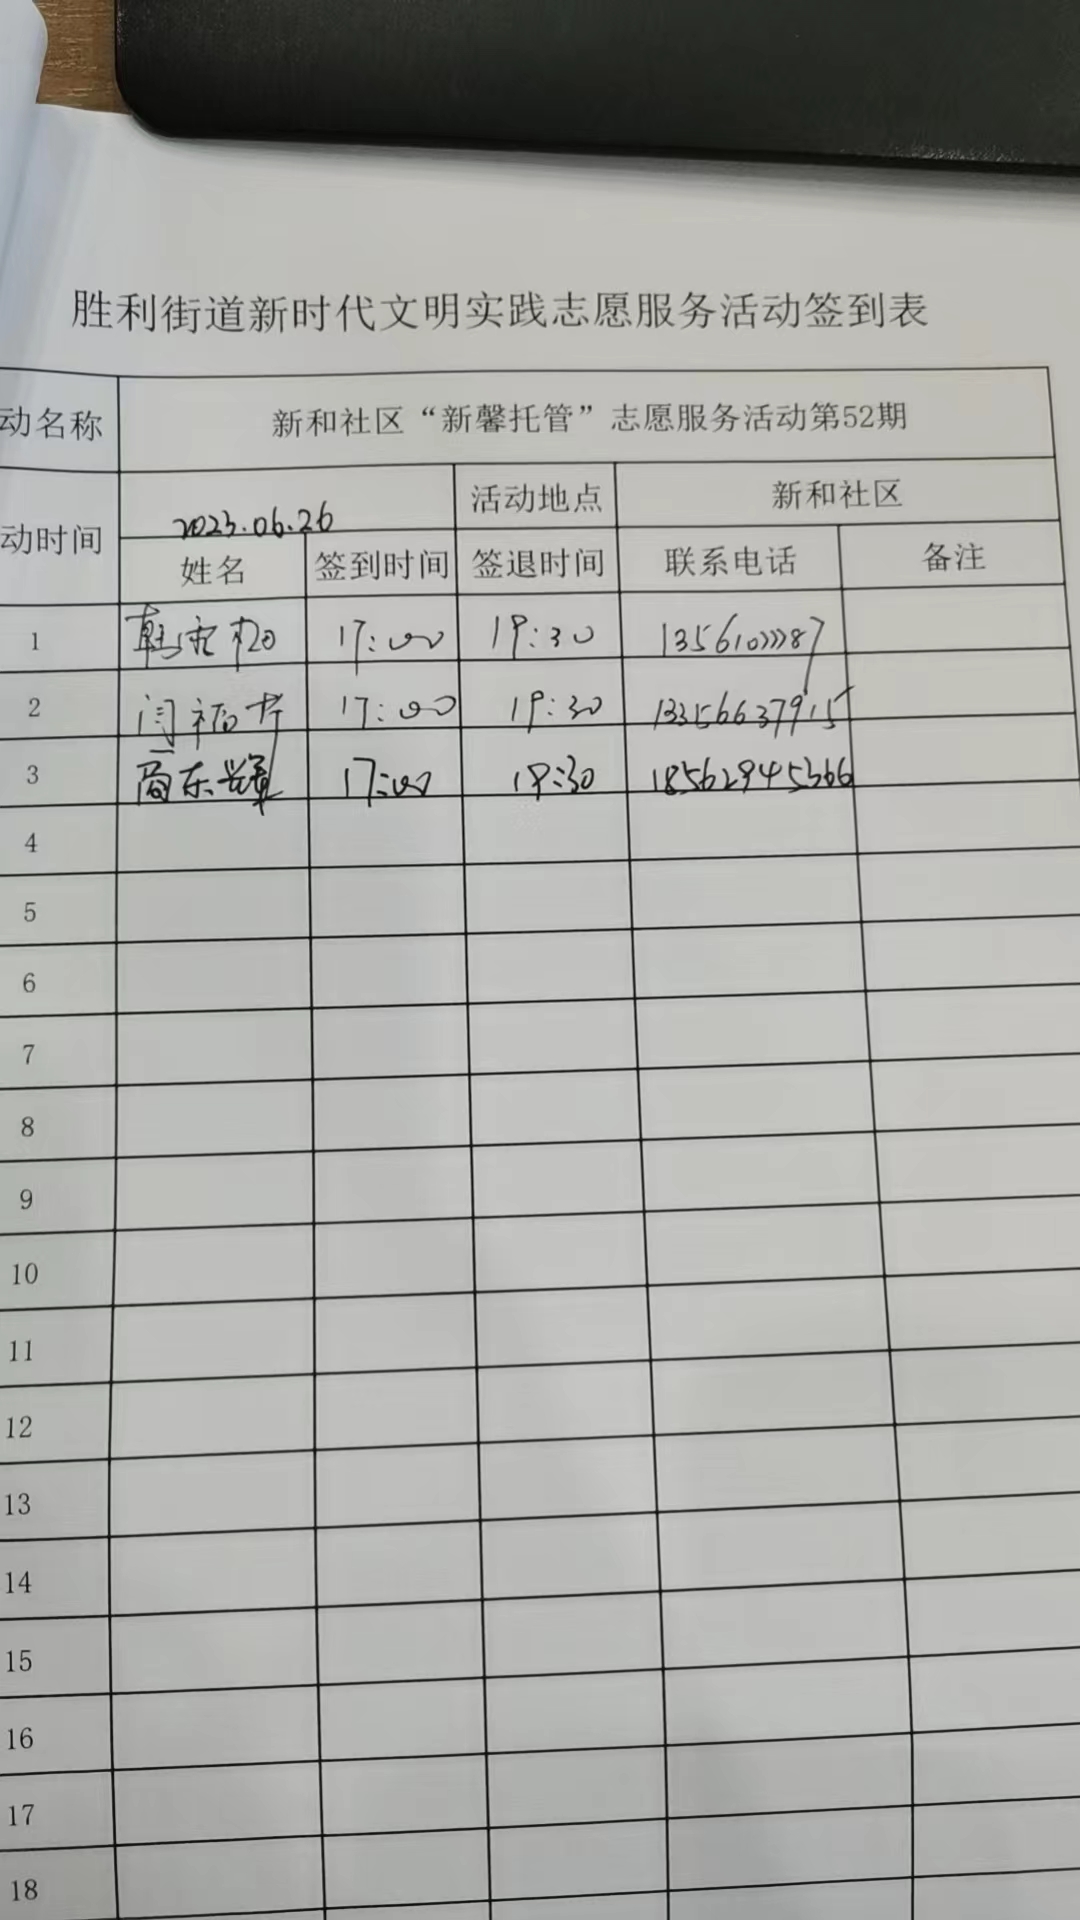 胜利街道新时代文明实践志愿服务活动签到表
动名称 新和社区“新馨托管”志愿服务活动第52期
动时间 2023.06.26 活动地点 新和社区
姓名 签到时间 签退时间 联系电话 备注
1 17:00 19:30
2 闫福芹 17:00 19:30 13356637915
3 商东辉 17:00 19:30 18562945366
4
5
6
7
8
9
10
11
12
13
14
15
16
17
18